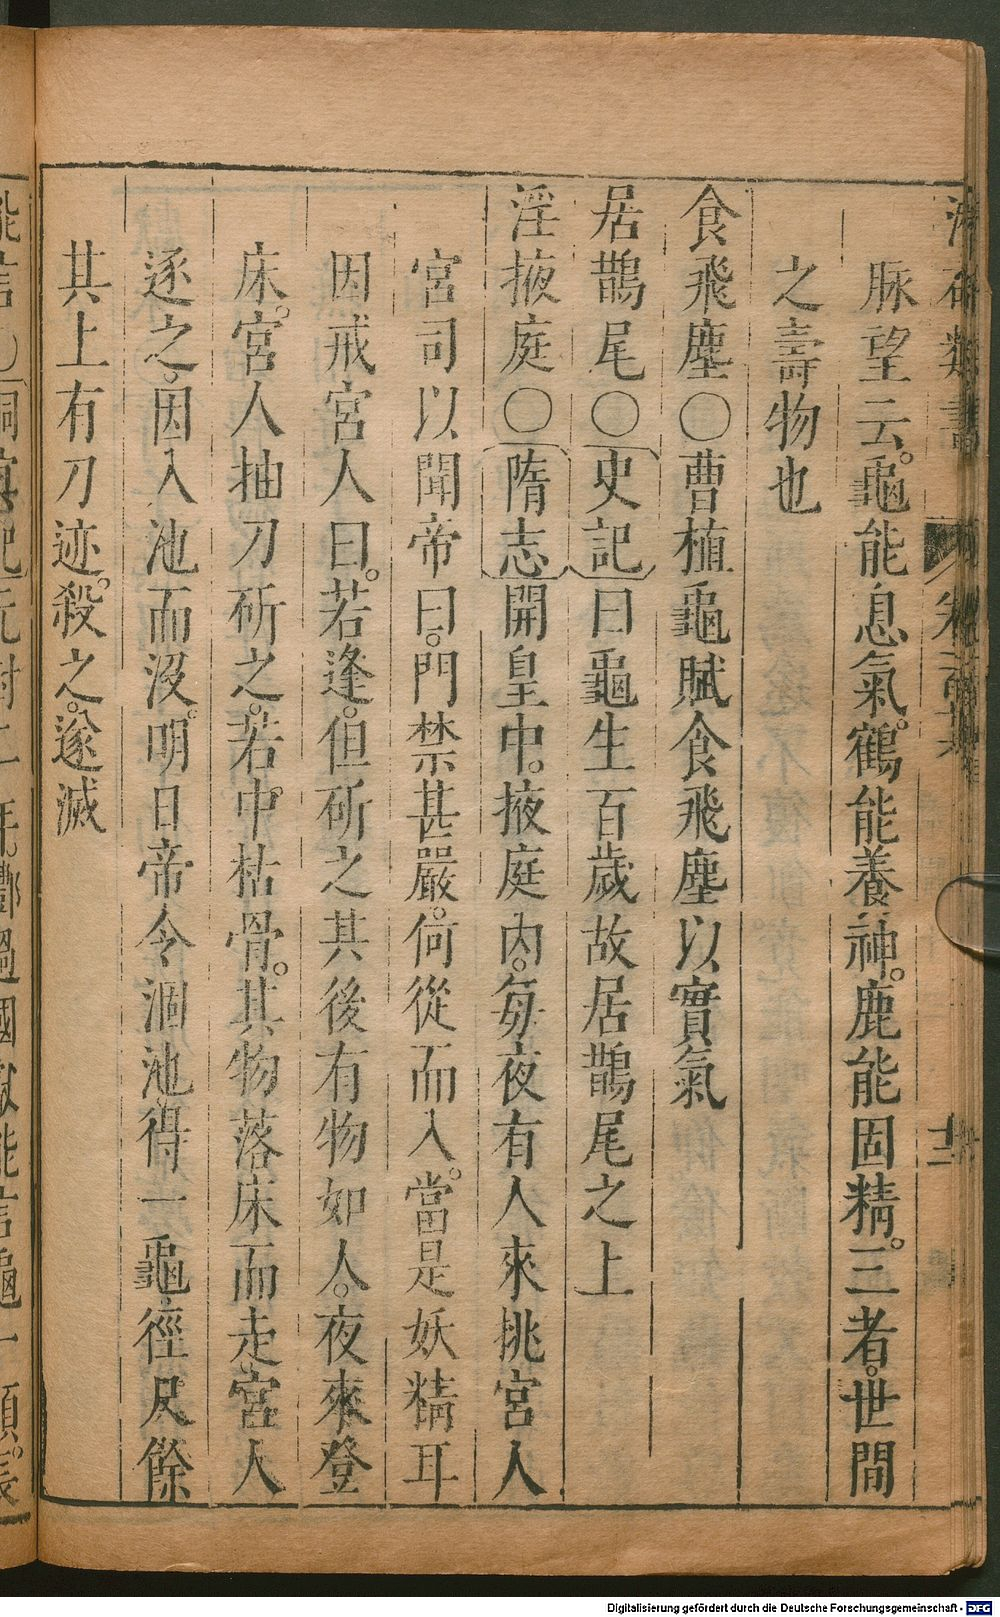 脉望云。龜能息氣。鶴能養神。鹿能固精。三者。世間
之壽物也
食飛塵〇曹植龜賦食飛塵以實氣
居鵲尾〇史記曰龜生百歲故居鵲尾之上
淫掖庭〇隋志開皇中。掖庭內。每夜有人來挑宮人
宮司以聞帝曰。門禁甚嚴。何從而入。當是妖精耳
因戒宮人曰。若逢。但斫之其後有物如人。夜來登
床。宮人抽刀斫之。若中枯骨。其物落床而走宮人
逐之。因入池而沒。明日帝令涸池。得一龜徑尺餘
其上有刀迹。殺之。遂滅
Digitalisierung gefördert durch die Deutsche Forschungsgemeinschaft - DFG